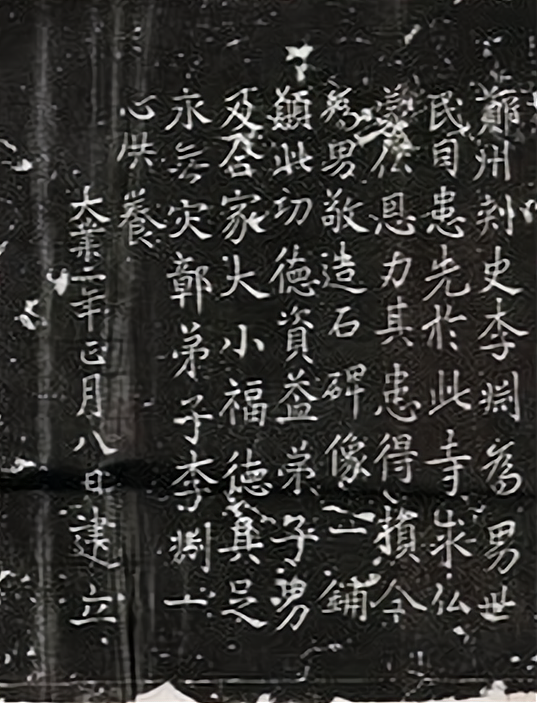 鄭州刾史李渊為男世
民目患先於此寺求仏
蒙仏恩力其患得損今
為男敬造石碑像一鋪
願此功德資益弟子男
及合家大小福德具足
永無灾鄣弟子李渊一
心供養
大業二年正月八日建立